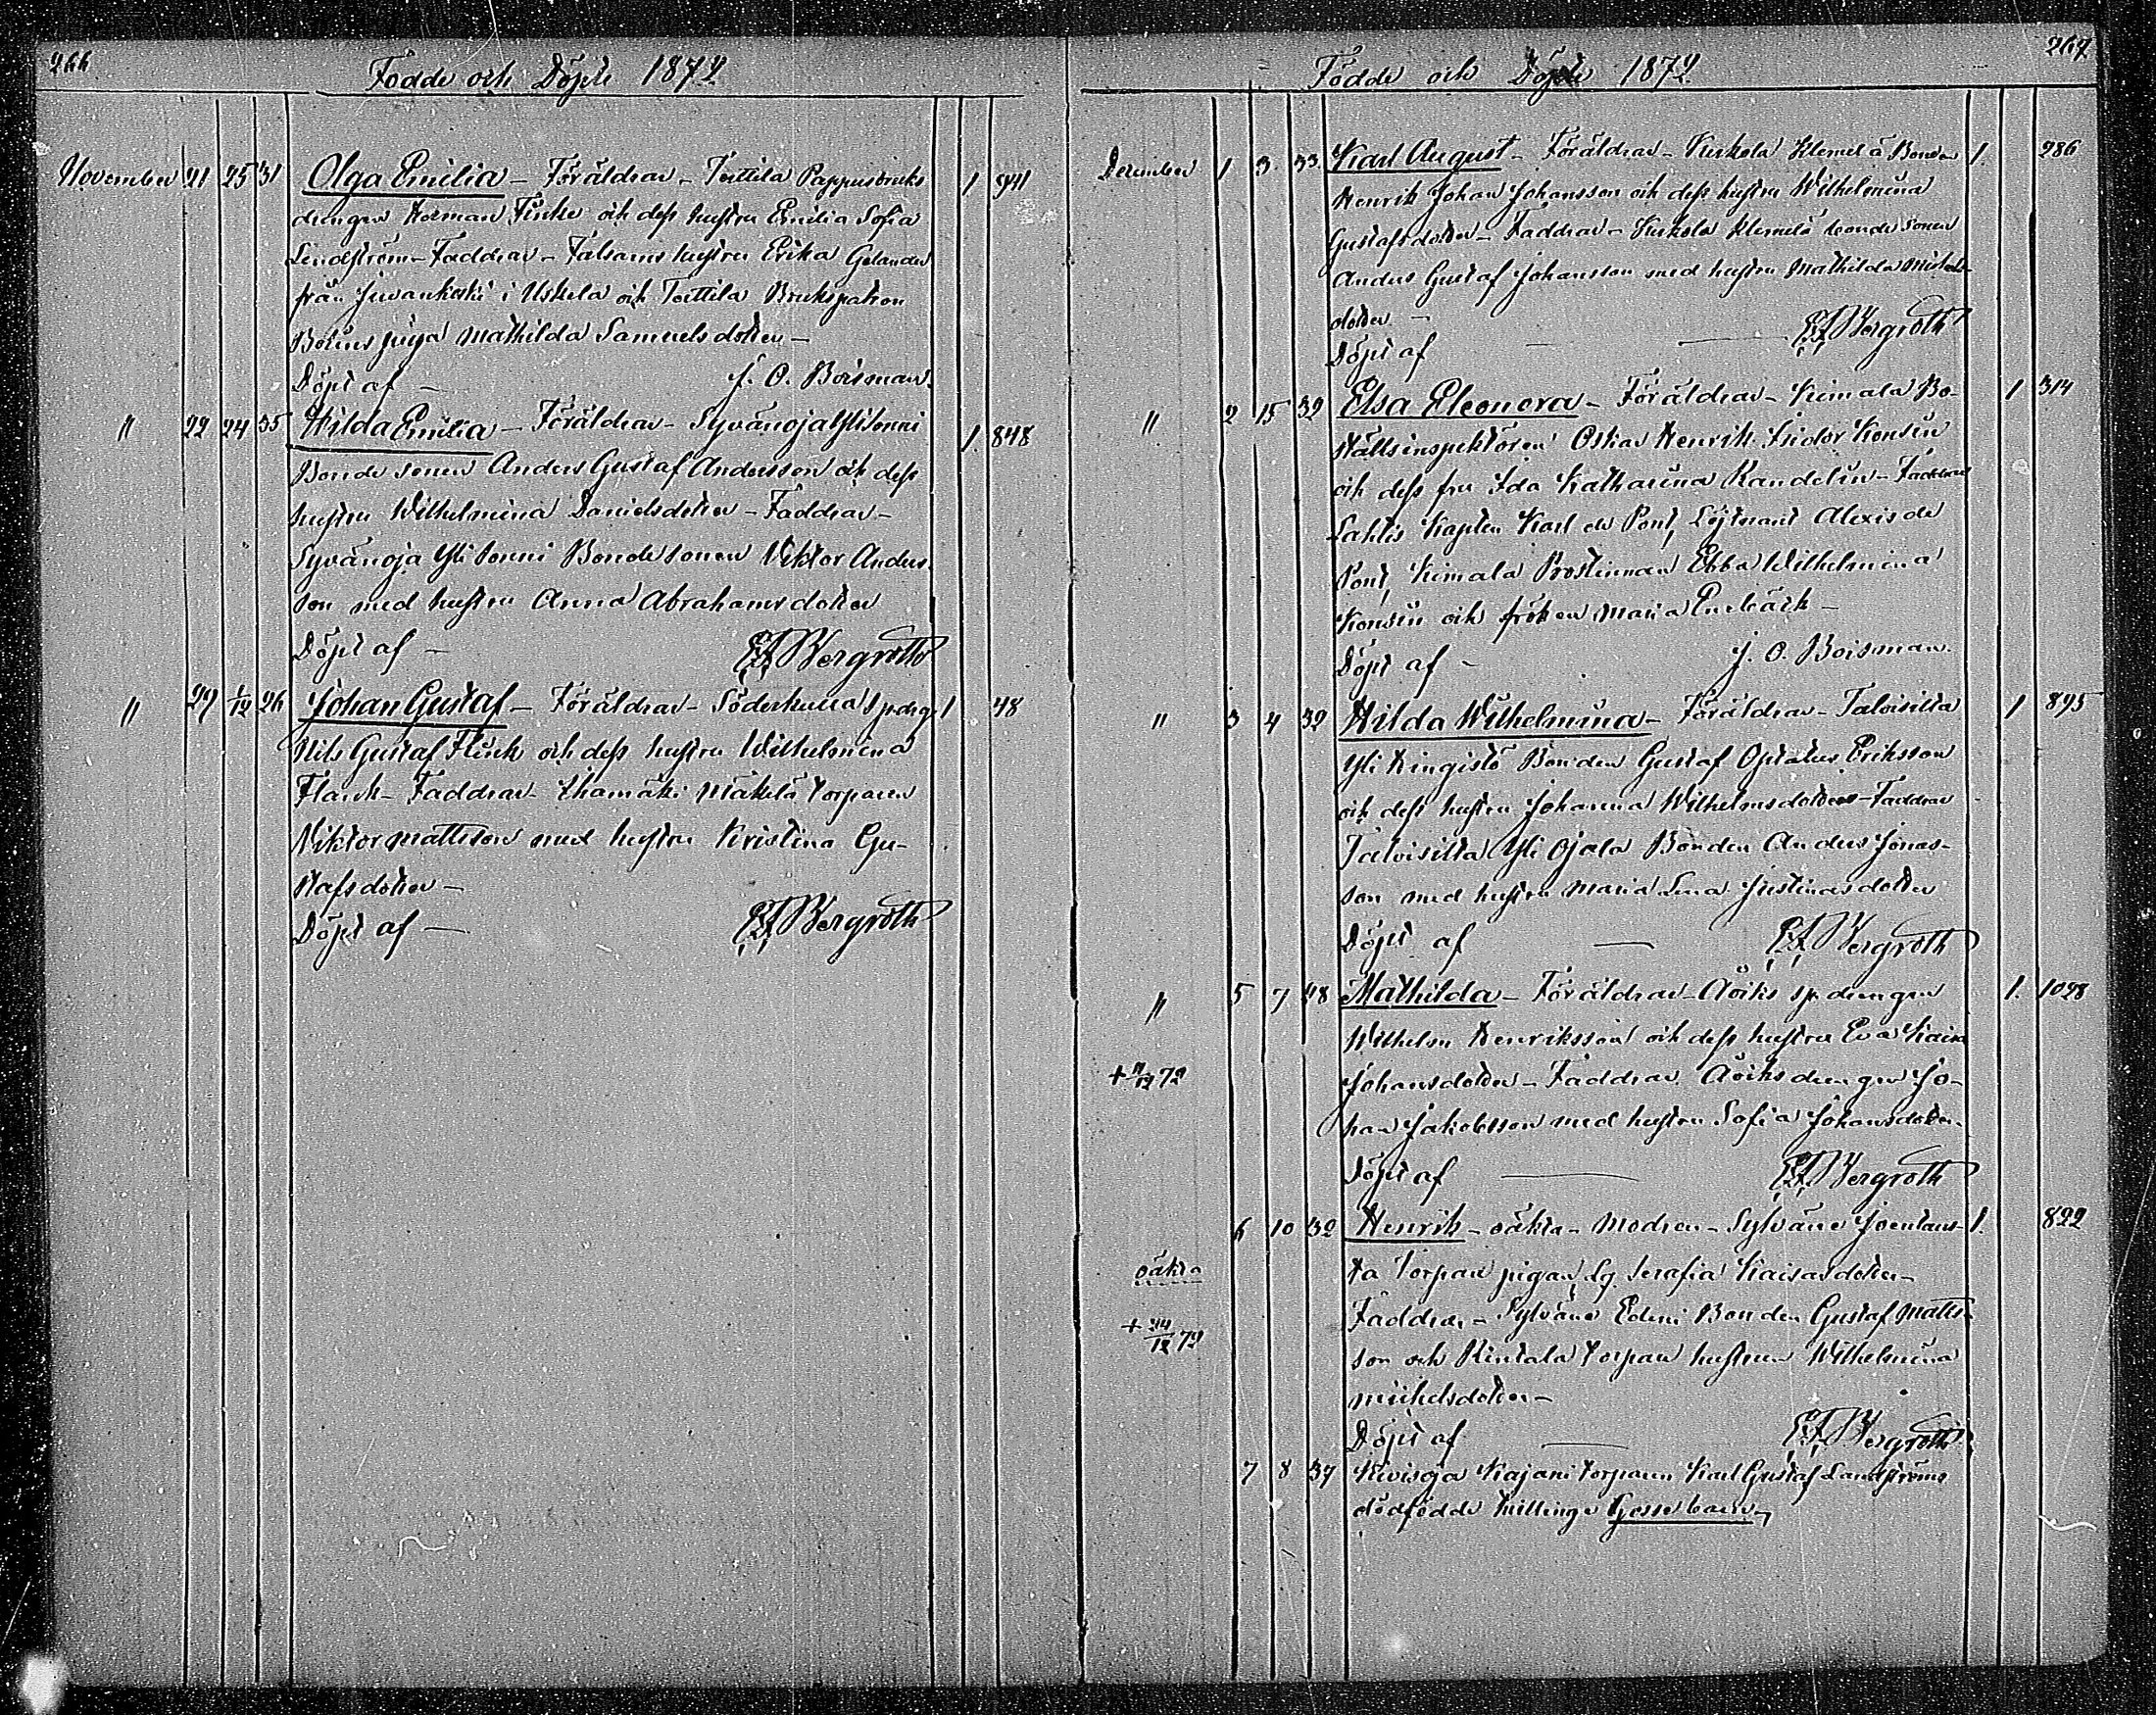 266
Födde och Döpte 1872
November 21 25 31 Olga Emilia – Föräldrar – Torttila Pappersbruks 1. 841
drengen Herman Finke och dess hustru Emilia Sofia
Lindström – Faddrar – Fältsams hustru Erika Gelander
från Juvankoski i Uskela och Torttila Brukspatron
piga Mathilda Samuelsdotter –
Döpt af – J. O. Boisman.
" 22 24 35 Hilda Emilia – Föräldrar – Syvänoja Ylisonni 1. 848
Bonde sonen Anders Gustaf Andersson och dess
hustru Wilhelmina Danielsdotter – Faddrar –
Syvänoja Yli Sonni Bonde sonen Viktor Anders
son med hustru Anna Abrahamsdotter
Döpt af – Bergroth
" 29 1/12 26 Johan Gustaf – Föräldrar – Söderkulla Spdrg 1 48
Nils Gustaf Flink och dess hustru Wilhelmina
Flink – Faddrar – Ihamäki Mäkelä torparen
Viktor Mattsson med hustru Kristina Gu-
stafsdotter –
Döpt af – Bergroth
267
Födde och Döpte 1872
December 1 3. 33. Karl August – Föräldrar – Kerkola Klemelä Bonden 1. 286
Henrik Johan Johansson och dess hustru Wilhelmina
Gustafsdotter – Faddrar – Kerkola Klemelä bonde sonen
Anders Gustaf Johansson med hustru Mathilda Mikels-
dotter –
Döpt af – Bergroth
" 2 15 32 Elsa Eleonora – Föräldrar – Kimala Bo- 1 314
ställsinspektören Oskar Henrik Isidor Konsin
och dess fru Ida Katharina Randelin – Faddrar
Lahtis Kapten Karl de Pont, Löjtnant Alexis de
Pont, Kimala Prostinnan Ebba Wilhelmina
Konsin och fröken Maria
Döpt af – J. O. Boisman.
" 3 4 32 Hilda Wilhelmina – Föräldrar – Talvisilta 1 895
Yli Kingistö Bonden Gustaf Optatus Eriksson
och dess hustru Johanna Wilhelmsdotter – Faddrar
Talvisilta Yli Ojala Bonden Anders Jonas-
son med hustru Maria Lena Justinasdotter
Döpt af — Bergroth
" 5 7 48 Mathilda – Föräldrar – Åviks sp. drengen 1. 1028
Wilhelm Henriksson och dess hustru Eva Kaisa
+ 11/12 72 Johansdotter – Faddrar Åviks drengen Jo-
han Jakobsson med hustru Sofia Johansdotter.
Döpt af — Bergroth
6 10 32 Henrik – oäkta – Modren – Sylväne Joentaus- 1. 822
oäkta ta Torpan pigan Lg. Serafia Kaisasdotter –
Faddrar – Sylväne Edeni Bonden Gustaf Matts-
+ 24/12 72 son och Rintala torpan hustrun Wilhelmina
Mickelsdotter –
Döpt af — Bergroth
7 8 37 Kivisoja Kajani torparen Karl Gustaf Landströms
dödfödde tvillinge Gossebarn,